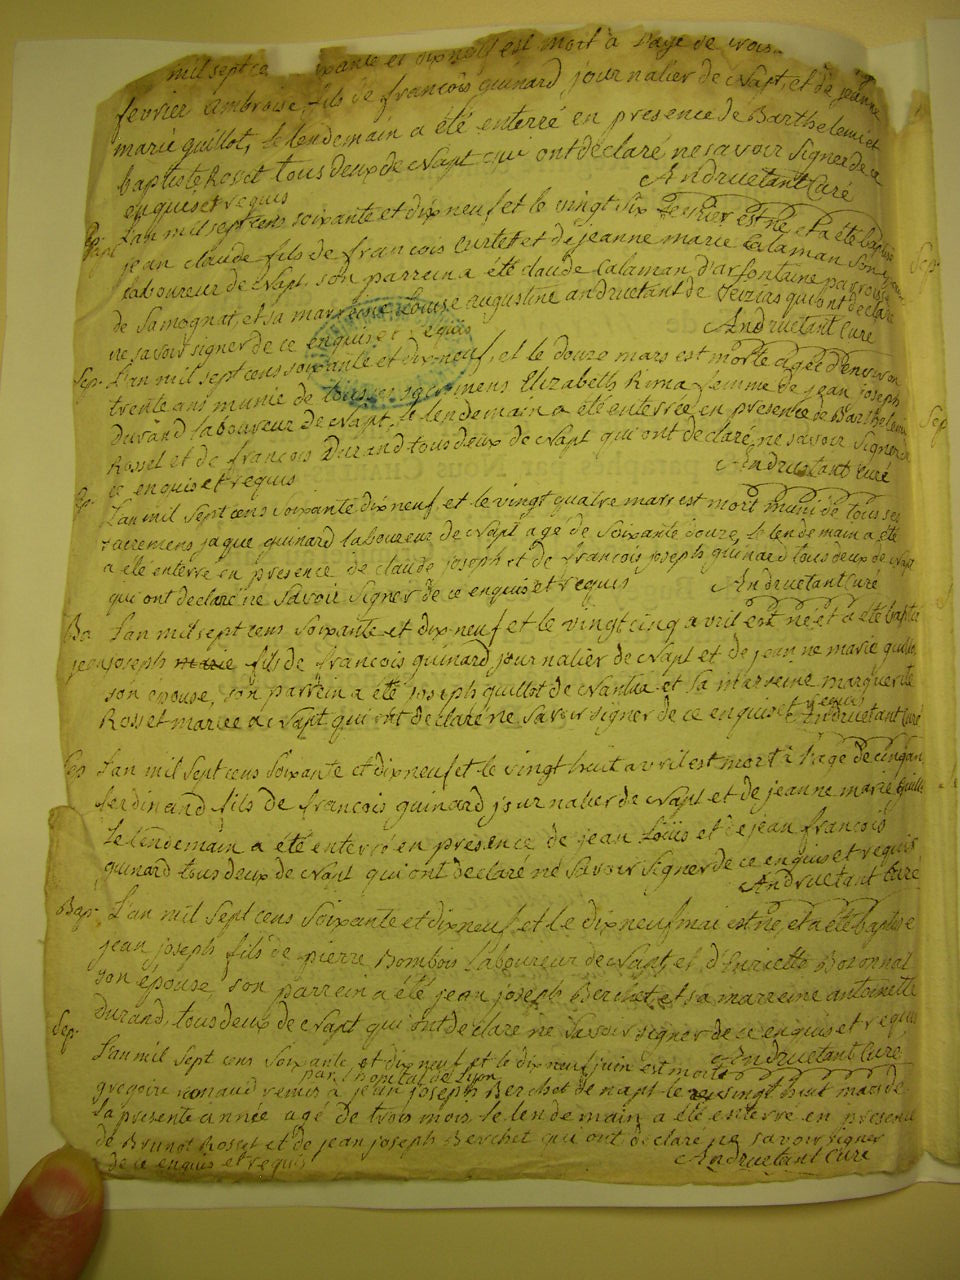 mil sept ce ixante et dix neuf est mort a l'age de trois
fevrier ambroise fils de françois guinard journalier de Napt, et de jeanne
marie guillot, le lendemain a été enterré en presence de Barthelemi et
baptiste Rosset tous deux de Napt qui ont declaré ne savoir signer de ce
enquis et requis Andruetant Curé
Bap. L'an mil sept cens soixante et dix neuf et le vingt six fevrier est né et a été baptisé
jean claude fils de françois Curtet et de jeanne marie Calaman son epouse
laboureur de Napt, son parrein a été claude Calaman d'arfontaine paroisse
de Samognat, et sa marreine louise augustine andruetant de Veizias qui ont declaré
ne savoir signer de ce enquis et requis Andruetant Curé
Sep. L'an mil sept cens soixante et dix neuf, et le douze mars est morte agée d'environ
trente ans munie de tous ses sacremens Elizabeth Roma femme de jean joseph
Durand laboureur de Napt, le lendemain a été enterrée en presence de Barthelemi
Rosset et de françois Durand tous deux de Napt qui ont declaré ne savoir signer de
ce enquis et requis Andruetant Curé
Sep. L'an mil sept cens soixante dix neuf, et le vingt quatre mars est mort muni de tous ses
sacremens jaque guinard laboureur de Napt agé de soixante douze, le lendemain a été
a été enterré en presence de claude joseph et de françois joseph guinard tous deux de Napt
qui ont declaré ne savoir signer de ce enquis et requis Andruetant Curé
Ba L'an mil sept cens soixante et dix neuf et le vingt cinq avril est né et a été bapti
jean joseph marie fils de françois guinard journalier de Napt et de jeanne marie guillot
son épouse, son parrein a été joseph guillot de Nantua et sa marreine marguerite
Rosset mariée a Napt qui ont declaré ne savoir signer de ce enquis et requis Andruetant Curé
Sep L'an mil sept cens soixante et dix neuf et le vingt huit avril est mort a l'age de cinq an
ferdinand fils de françois guinard journalier de Napt et de jeanne marie guillo
le lendemain a été enterré en presence de jean Loüis et de jean françois
guinard tous deux de Napt qui ont declaré ne savoir signer de ce enquis et requis
Andruetant Curé
Bap. L'an mil sept cens soixante et dix neuf, et le dix neuf mai est né, et a été baptisé
jean joseph fils de pierre Bombois laboureur de Napt, et d'Enriette Bozonnat
son épouse son parrein a été jean joseph Berchet et sa marreine antoinette
Durand, tous deux de Napt qui ont declaré ne savoir signer de ce enquis et requis
Andruetant Curé
Sep. L'an mil sept cens soixante et dix neuf et le dix neuf juin est mort
par l'hopital de Lyon
gregoire renaud remis a jean joseph Berchet de napt le vingt huit mars de
la presente année agé de trois mois le lendemain a été enterré en presence
de Brunot Rosset et de jean joseph Berchet qui ont declaré ne savoir signer
de ce enquis et requis Andruetant Curé
Sep.
Sep